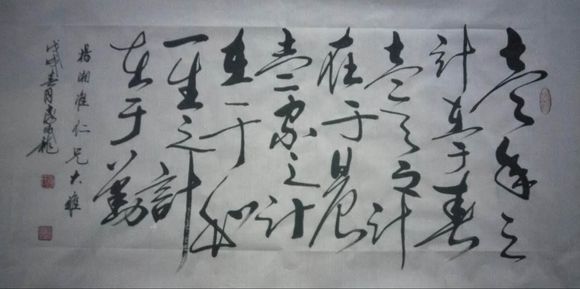 壹年之
计在于春
壹天之计
在于晨
壹家之计
在于和
一生之計
在于勤
杨湘淮仁兄大雅
戊戌春月